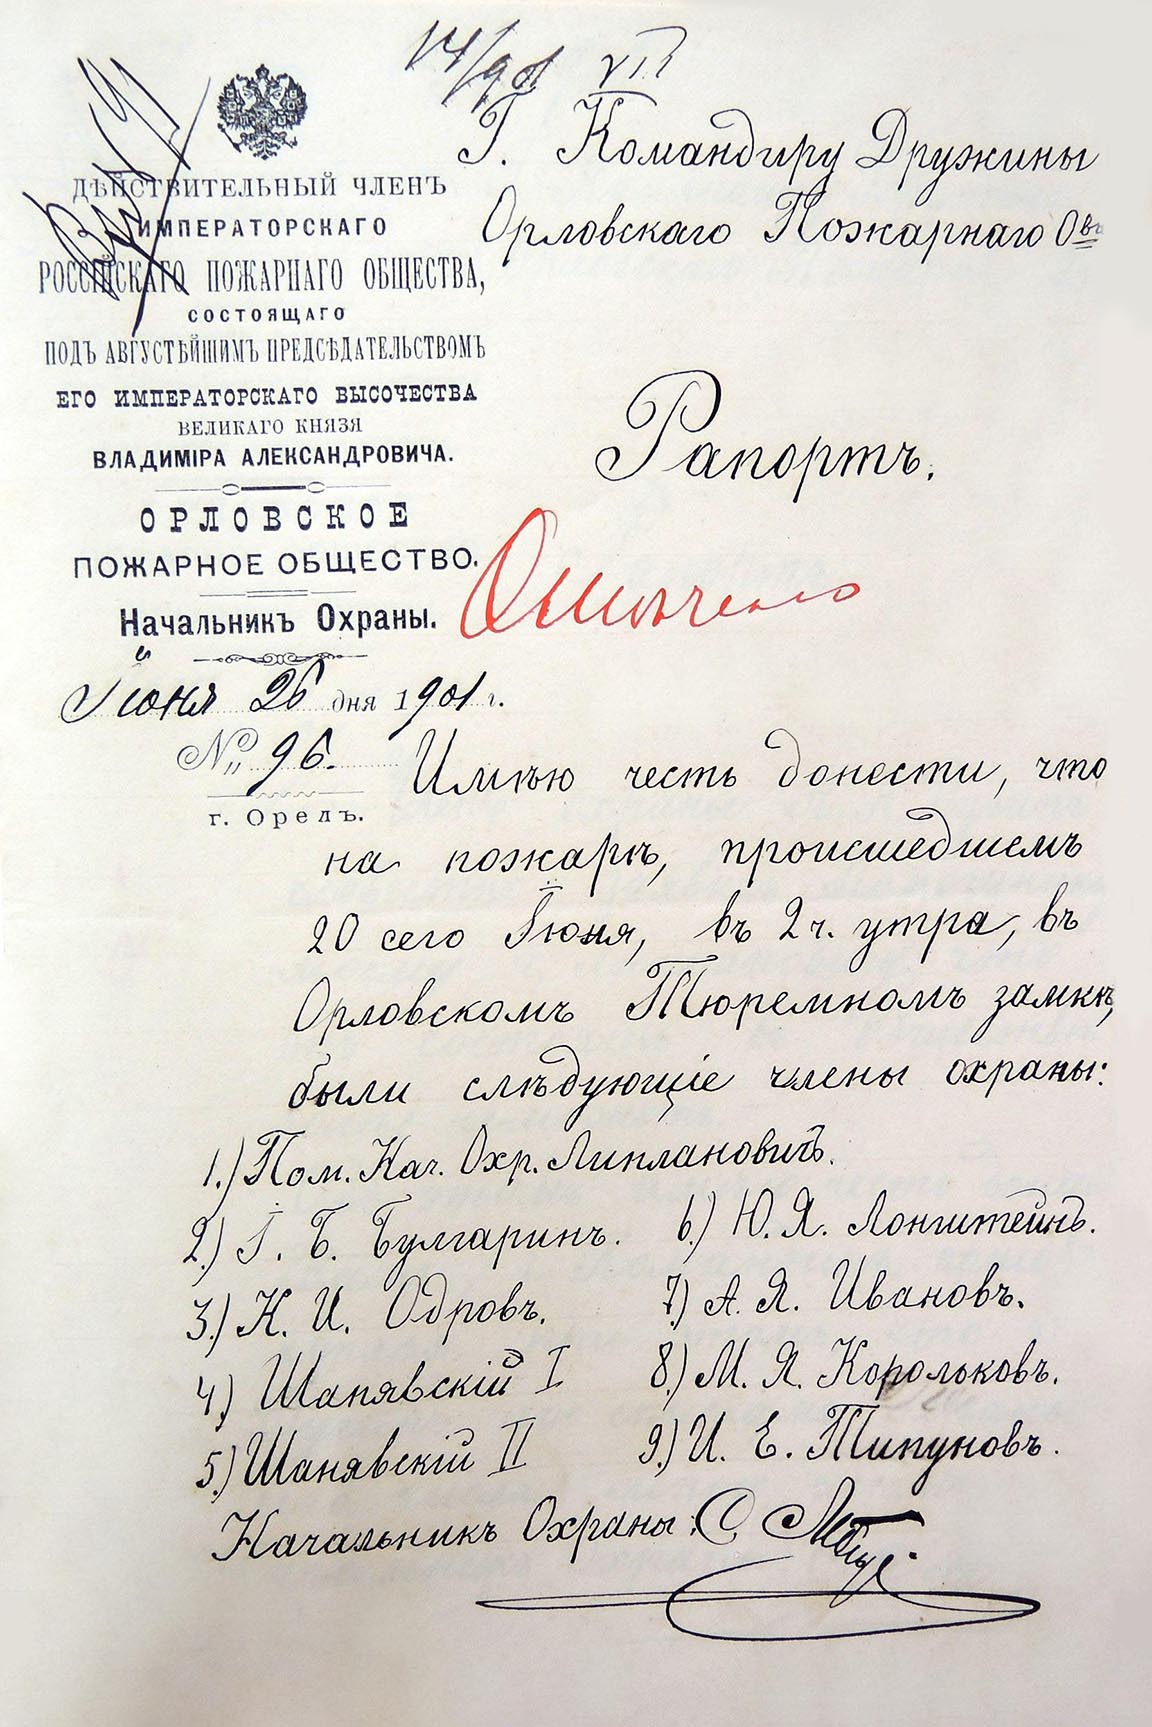 ДѢЙСТВИТЕЛЬНЫЙ ЧЛЕНЪ
ИМПЕРАТОРСКАГО
РОССІЙСКАГО ПОЖАРНАГО ОБЩЕСТВА,
СОСТОЯЩАГО
ПОДЪ АВГУСТѢЙШИМЪ ПРЕДСѢДАТЕЛЬСТВОМЪ
ЕГО ИМПЕРАТОРСКАГО ВЫСОЧЕСТВА
ВЕЛИКАГО КНЯЗЯ
ВЛАДИМІРА АЛЕКСАНДРОВИЧА.
ОРЛОВСКОЕ
ПОЖАРНОЕ ОБЩЕСТВО.
Начальникъ Охраны.
Іюня 26 дня 1901 г.
№ 96.
г. Орелъ.
VII
Г. Командиру Дружины
Орловскаго Пожарнаго О-ва
Рапортъ.
Имѣю честь донести, что
на пожарѣ, происшедшемъ
20 сего Іюня, въ 2 ч. утра, въ
Орловскомъ Тюремномъ замкѣ,
были слѣдующіе члены охраны:
1.) Пом. Нач. Охр. Липлановичъ.
2.) І. Б. Булгаринъ.
3.) К. И. Одровъ.
4.) Шанявскій I
5.) Шанявскій II
6.) Ю. Я. Лонгитейнъ.
7.) А. Я. Ивановъ.
8.) М. Я. Корольковъ.
9.) И. Е. Типуновъ.
Начальникъ Охраны: С.